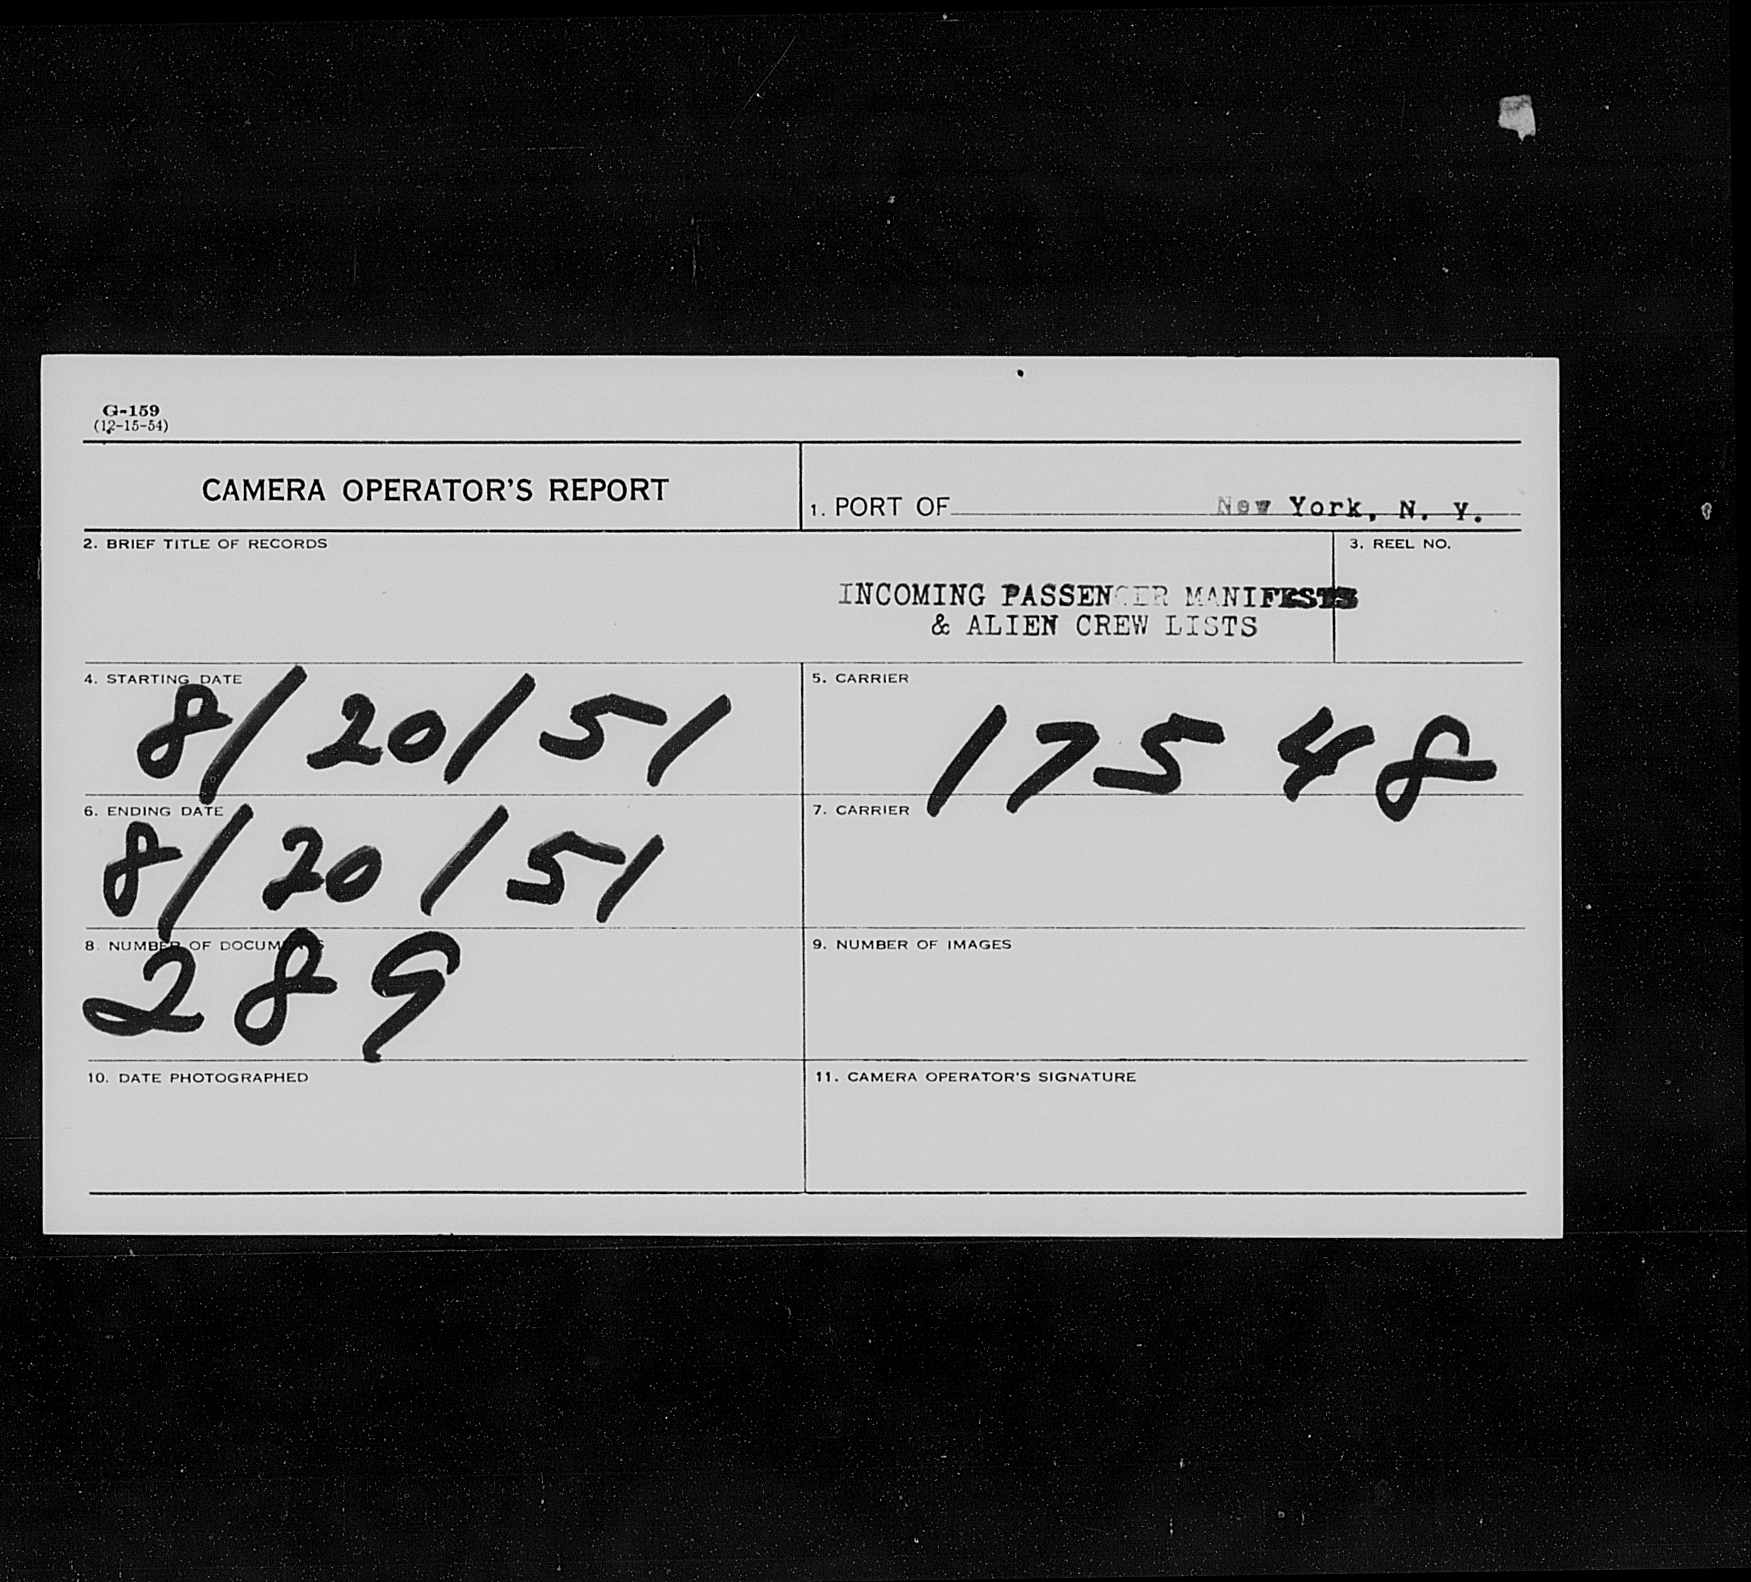 G-159
(12-15-54)
CAMERA OPERATOR'S REPORT
1. PORT OF New York, N. Y.
2. BRIEF TITLE OF RECORDS
3. REEL NO.
INCOMING PASSENGER MANIFESTS
& ALIEN CREW LISTS
4. STARTING DATE
8/20/51
5. CARRIER
17548
6. ENDING DATE
8/20/51
7. CARRIER
8. NUMBER OF DOCUMENTS
289
9. NUMBER OF IMAGES
10. DATE PHOTOGRAPHED
11. CAMERA OPERATOR'S SIGNATURE